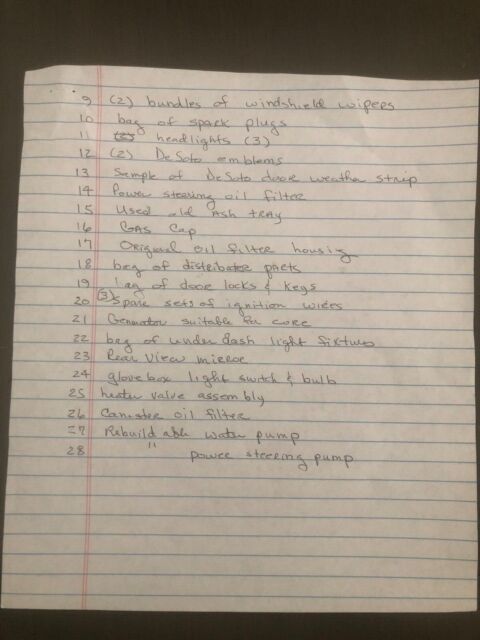 9 (2) bundles of windshield wipers
10 bag of spark plugs
11 headlights (3)
12 (2) DeSoto emblems
13 Sample of DeSoto door weather strip
14 Power steering oil filter
15 Used old Ash tray
16 GAS Cap
17 Original oil filter housing
18 bag of distributer parts
19 bag of door locks & keys
20 (3) Spare sets of ignition wires
21 Generator suitable for core
22 bag of under dash light fixtures
23 Rear View mirror
24 glovebox light switch & bulb
25 heater valve assembly
26 Canister oil filter
27 Rebuildable water pump
28 " power steering pump